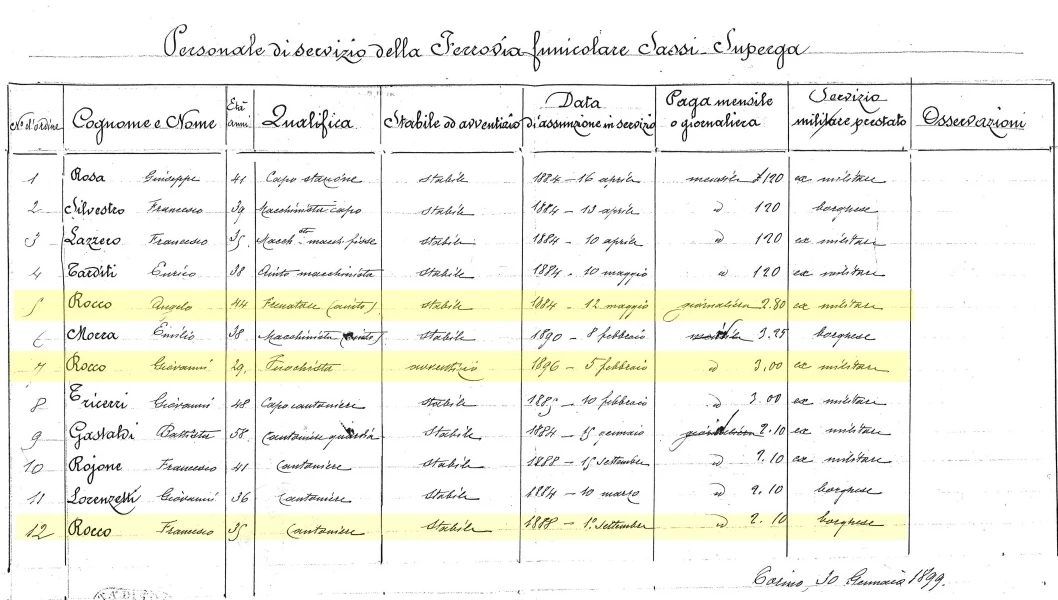 Personale di servizio della Ferrovia funicolare Sassi-Superga
N.º d'ordine Cognome e Nome Età anni Qualifica Stabile od avventizio Data d'assunzione in servizio Paga mensile o giornaliera Servizio militare prestato Osservazioni
1 Rosa Giuseppe 41 Capo stazione stabile 1884 - 16 aprile mensile £ 120 ex militare
2 Silvestro Francesco 39 Macchinista capo stabile 1884 - 13 aprile id 120 borghese
3 Lazzero Francesco 35 stabile 1884 - 10 aprile id 120 ex militare
4 Tarditi Enrico 38 Aiuto macchinista stabile 1884 - 10 maggio id 120 ex militare
5 Rocco Angelo 44 Frenatore (aiuto) stabile 1884 - 12 maggio giornaliera 2.80 ex militare
6 Morra Emilio 38 Macchinista (aiuto) stabile 1890 - 8 febbraio id 3.25 borghese
7 Rocco Giovanni 29 Fuochista avventizio 1896 - 5 febbraio id 3,00 ex militare
8 Tricerri Giovanni 48 Capo cantoniere stabile 1885 - 10 febbraio id 3.00 ex militare
9 Gastaldi Battista 58 Cantoniere guardia stabile 1884 - 15 gennaio id 2.10 ex militare
10 Rojone Francesco 41 Cantoniere Stabile 1888 - 15 settembre id 2.10 ex militare
11 Lorenzetti Giovanni 36 Cantoniere Stabile 1884 - 10 marzo id 2.10 borghese
12 Rocco Francesco 35 Cantoniere Stabile 1888 - 1º settembre id 2.10 borghese
Torino, 30 Gennaio 1899.